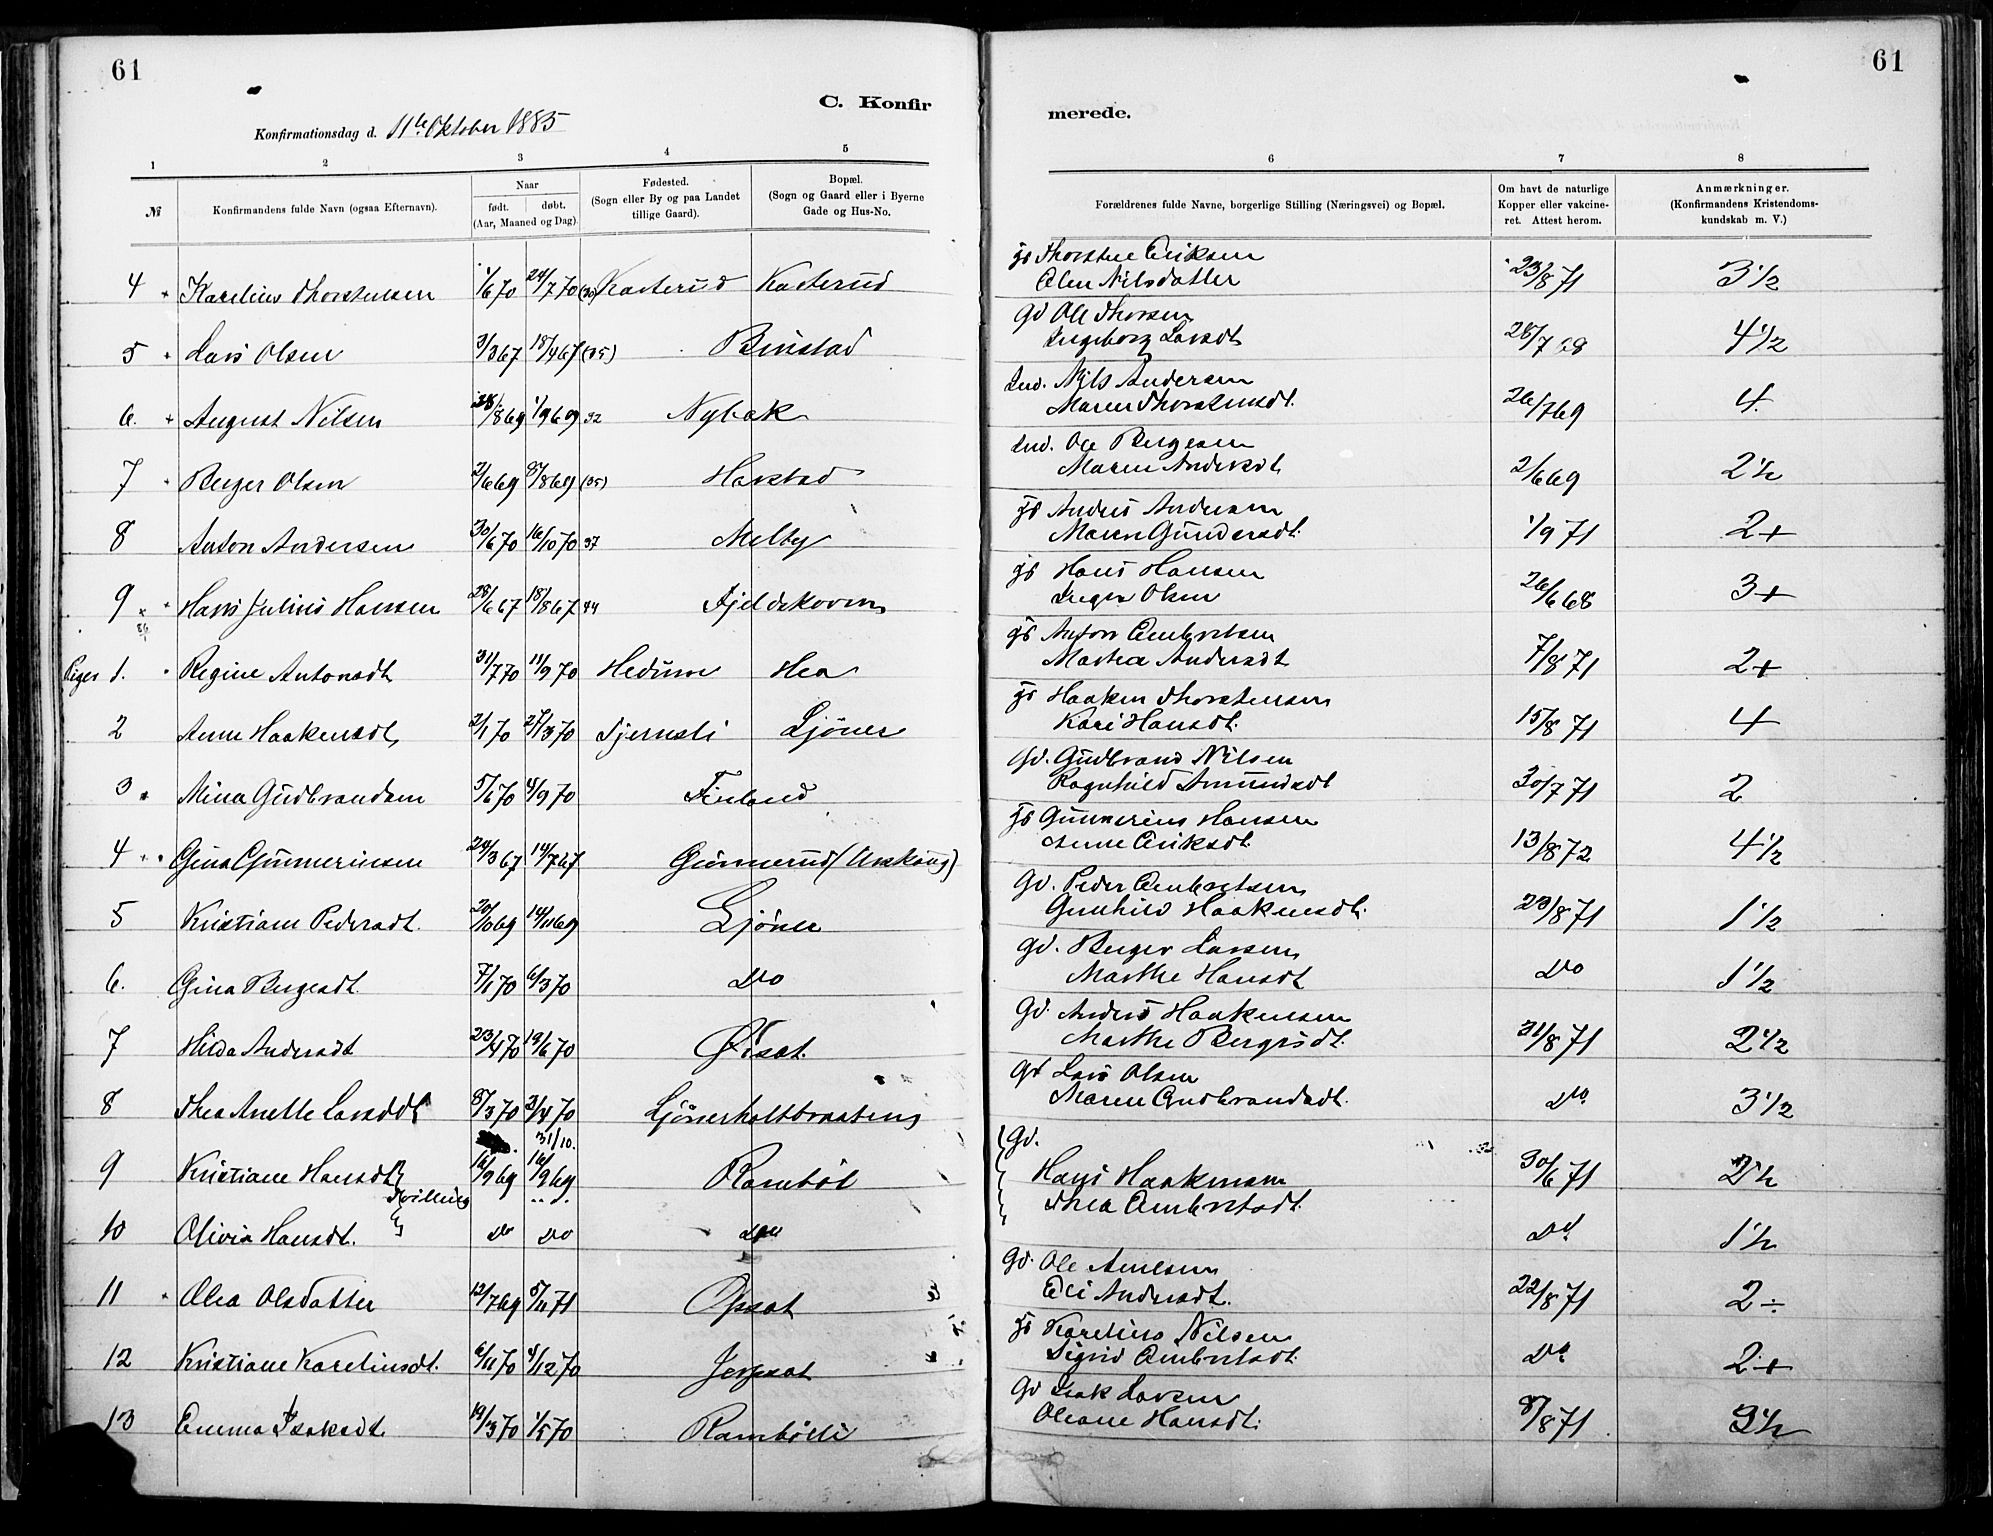 61
61
C. Konfir
merede.
Konfirmationsdag d. 11te Oktober 1885
1 2 3 4 5 6 7 8
№
Konfirmandens fulde Navn (ogsaa Efternavn).
Naar
født. døbt.
(Aar, Maaned og Dag).
Fødested.
(Sogn eller By og paa Landet
tillige Gaard).
Bopæl.
(Sogn og Gaard eller i Byerne
Gade og Hus-No.
Forældrenes fulde Navne, borgerlige Stilling (Næringsvei) og Bopæl.
Om havt de naturlige
Kopper eller vakcine-
ret. Attest herom.
Anmærkninger.
(Konfirmandens Kristendoms-
kundskab m. V.)
4 Karelius Thorstensen 1/6 70 24/7 70 (30) Kasterud Kasterud gs Thorsten Eriksen 23/8 71 3 1/2
Olea Nilsdatter
5 Lars Olsen 3/3 67 18/4 67 (35) Binstad gd Ole Thorsen 28/7 68 4 1/2
Ingeborg Larsdt
6. August Nilsen 28/8 69 1/9 69 32 Nybak Ind. Nils Andersen 26/7 69 4.
Maren Thorstensdt.
7 Berger Olsen 2/6 69 8/8 69 (35) Harstad Ind. Ole Bergesen 2/6 69 2 1/2
Maren Andersdt
8 Anton Andersen 30/6 70 16/10 70 37 Melby gs Anders Andersen 1/9 71 2+
Maren Gundersdt.
9 Hans Julius Hansen 28/6 67 18/8 67 44 Fjeldskoven gs Hans Hansen 26/6 68 3+
Inger Olsen
Piger 1. Regine Antonsdt 31/7 70 11/9 70 Hedum Hea gs Anton Embretsen 7/8 71 2+
Marthea Andersdt
2 Anne Haakensdt 2/1 70 27/3 70 Tjernsli Ljöner gs Haaken Thorstensen 15/8 71 4
Kari Hansdt.
3 Mina Gudbrandsen 5/6 70 4/9 70 Finland Gd. Gudbrand Nilsen 30/7 71 2
Ragnhild Amundsdt
4 Gina Gunnerinsen 24/3 67 14/7 67 Gunnerud (Urskoug) gs Gunnerius Hansen 13/8 72 4 1/2
Anne Eriksdt.
5 Kristiane Pedersdt. 20/10 69 14/11 69 Ljöner Gd. Peder Embretsen 23/8 71 1 1/2
Gunhild Haakensdt.
6. Gina Bergesdt. 7/1 70 6/3 70 Do gd. Berger Larsen Do 1 1/2
Marthe Hansdt
7 Hilda Andersdt 23/4 70 19/6 70 Opsat. Gd. Anders Haakensen 31/8 71 2 1/2
Marthe Bergersdt.
8 Thea Anette Larsdt 8/3 70 3/4 70 Ljönerholtbraaten Gd Lars Olsen Do 3 1/2
Maren Gudbrandsdt.
31/10.
9 Kristiane Hansdt 16/9 69 16/9 69 Ramböl Gd. Hans Haakensen 30/6 71 2 1/2
Tvilling Thea Embretsdt.
10 Olivia Hansdt. Do Do Do Do 1 1/2
11 Olea Olsdatter 12/7 69 5/11 71 Opsat Gd. Ole Amlesen 22/8 71 2÷
Eli Andersdt.
12 Kristiane Kareliusdt. 6/11 70 4/12 70 Jorpsat gs Karelius Nilsen Do 2+
Sigrid Embretsdt.
13 Emma Isaksdt 19/3 70 1/5 70 Rambölli Gd Isak Larsen 8/8 71 3 1/2
Oleane Hansdt.